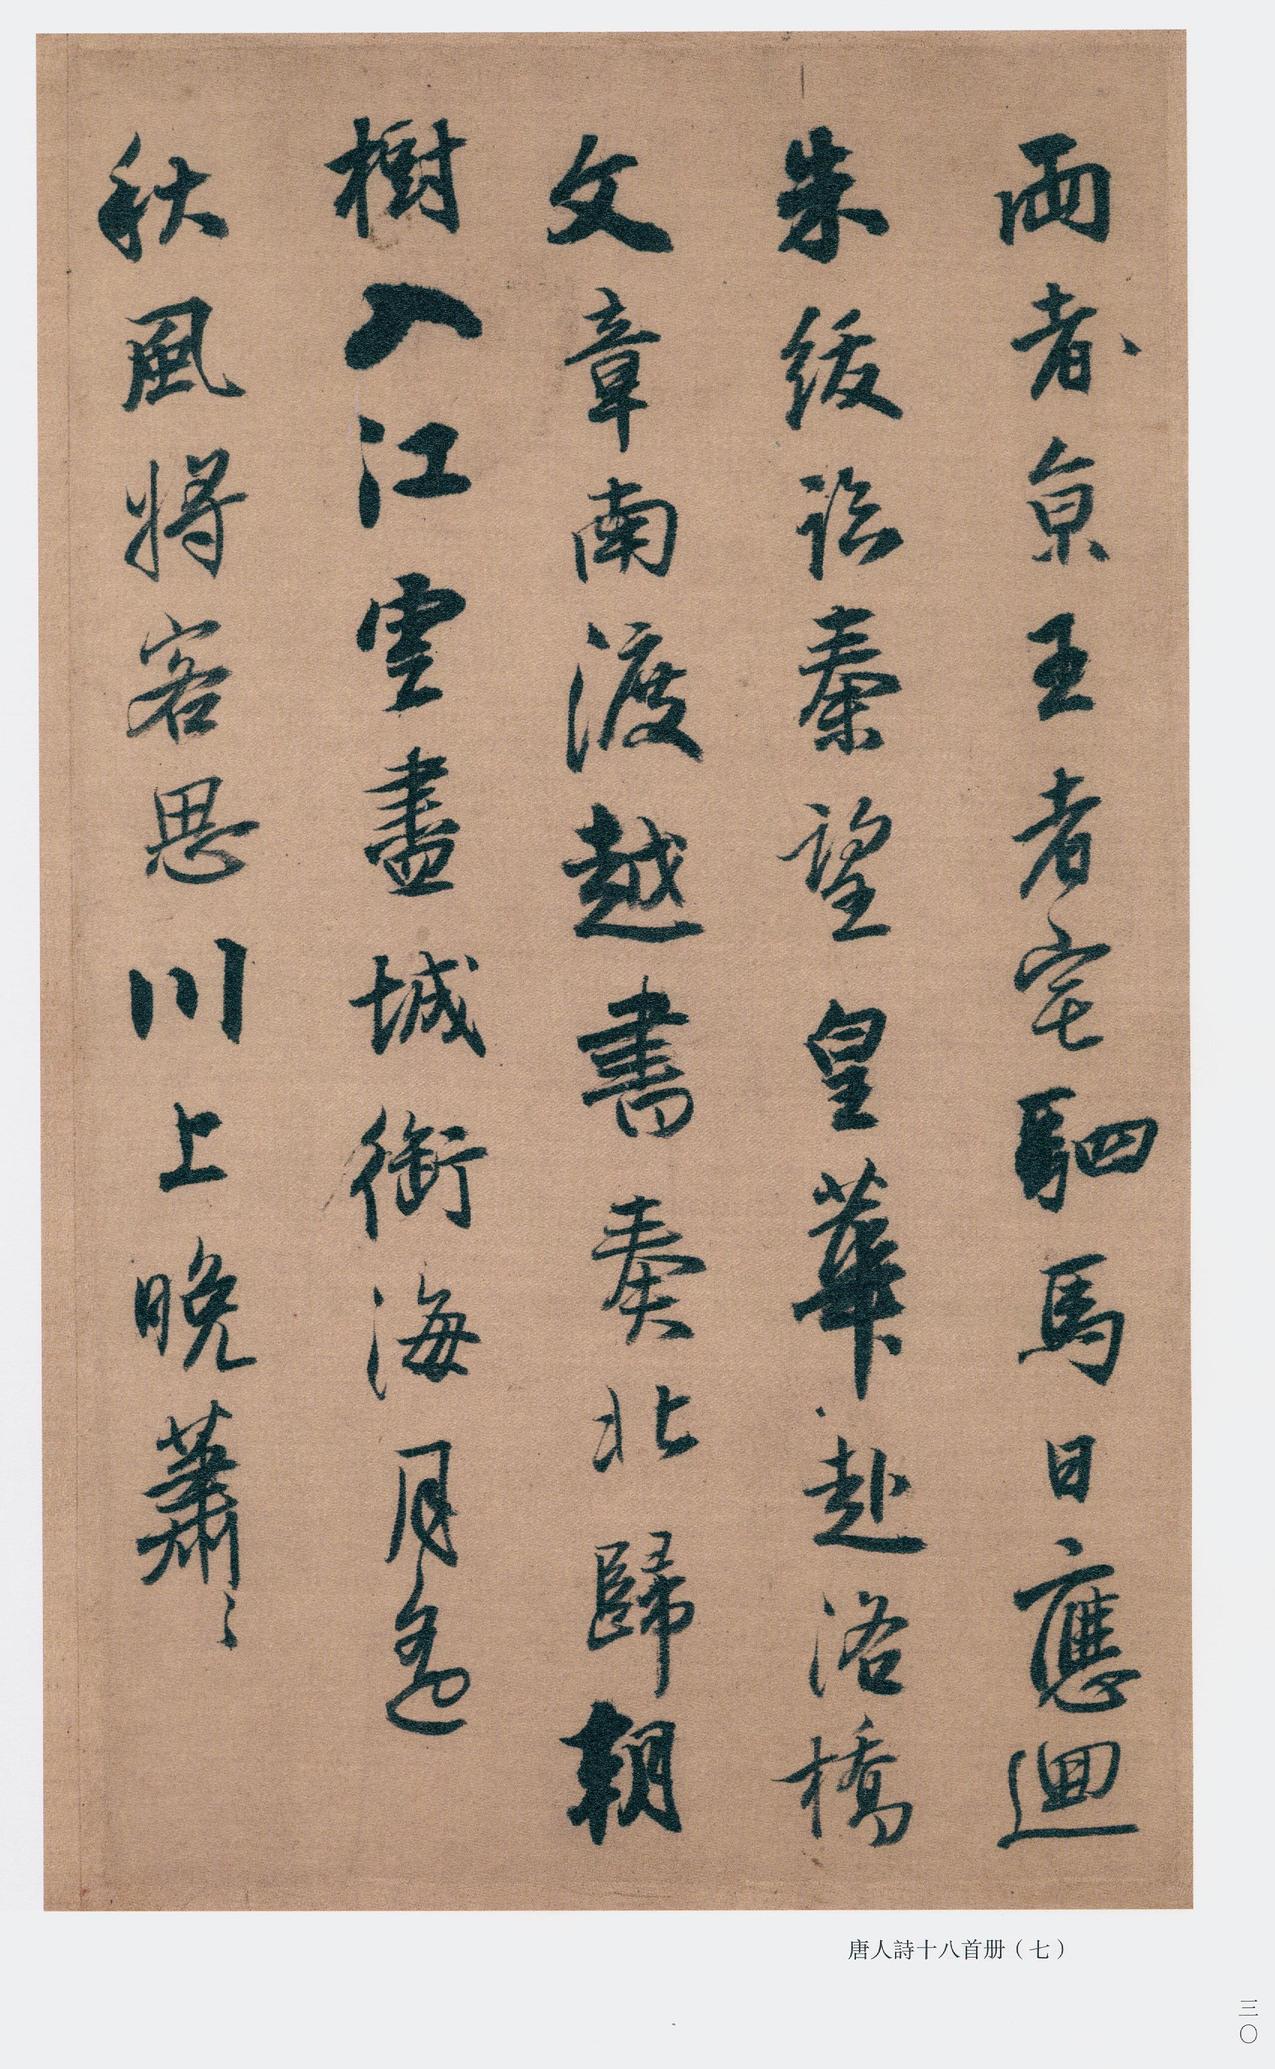 西者京王者宅駟馬日應迴
朱紱臨秦望皇華赴洛橋
文章南渡越書奏北歸朝
樹入江雲盡城銜海月遙
秋風將客思川上晚蕭々
唐人詩十八首册（七）
三〇